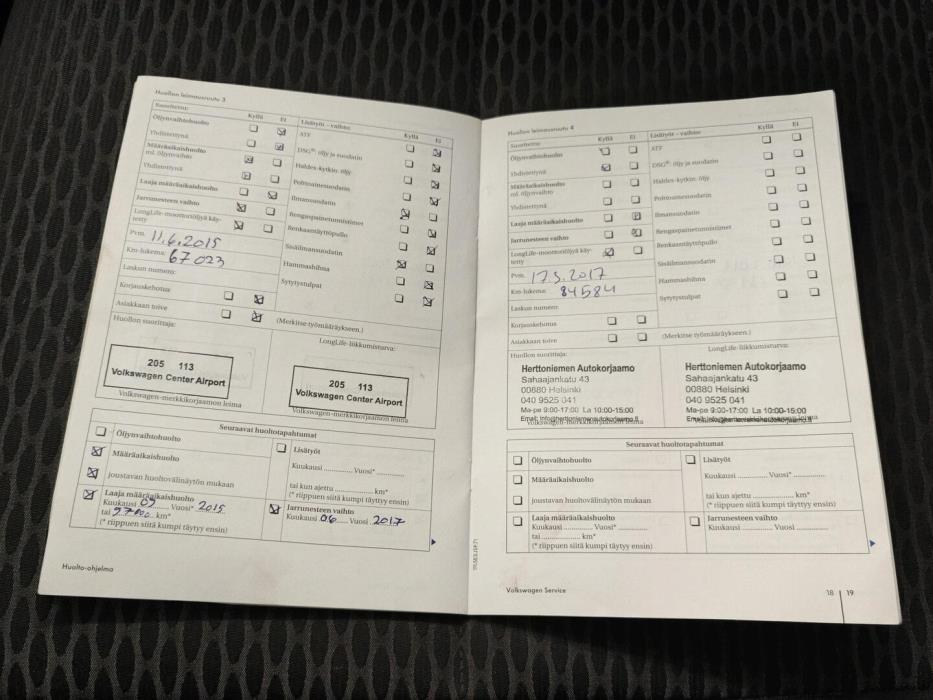 Huollon leimausruutu 3
Suoritettu:
Kyllä Ei
Öljynvaihtohuolto
Yhdistettynä
Määräaikaishuolto
ml. öljynvaihto
Yhdistettynä
Laaja määräaikaishuolto
Jarrunesteen vaihto
LongLife-moottoriöljyä käy-
tetty
Pvm. 11.6.2015
Km-lukema: 67 023
Laskun numero:
Korjauskehotus
Asiakkaan toive
Huollon suorittaja:
Lisätyöt – vaihto:
Kyllä Ei
ATF
DSG®: öljy ja suodatin
Haldex-kytkin: öljy
Polttoainesuodatin
Ilmansuodatin
Rengaspainetunnistimet
Renkaannäyttöpullo
Sisäilmansuodatin
Hammashihna
Sytytystulpat
(Merkitse työmääräykseen.)
LongLife-liikkumisturva:
205 113
Volkswagen Center Airport
Volkswagen-merkkikorjaamon leima
205 113
Volkswagen Center Airport
Volkswagen-merkkikorjaamon leima
Seuraavat huoltotapahtumat
Öljynvaihtohuolto
Määräaikaishuolto
joustavan huoltovälinäytön mukaan
Lisätyöt
Kuukausi ............. Vuosi* ..............
tai kun ajettu .................. km*
(* riippuen siitä kumpi täytyy ensin)
Laaja määräaikaishuolto
Kuukausi 09 Vuosi* 2015
tai 97000 km*
(* riippuen siitä kumpi täytyy ensin)
Jarrunesteen vaihto
Kuukausi 06 Vuosi 2017
Huolto-ohjelma
Huollon leimausruutu 4
Suoritettu:
Kyllä Ei
Öljynvaihtohuolto
Yhdistettynä
Määräaikaishuolto
ml. öljynvaihto
Yhdistettynä
Laaja määräaikaishuolto
Jarrunesteen vaihto
LongLife-moottoriöljyä käy-
tetty
Pvm. 17.5.2017
Km-lukema: 84584
Laskun numero:
Korjauskehotus
Asiakkaan toive
Huollon suorittaja:
Lisätyöt – vaihto:
Kyllä Ei
ATF
DSG®: öljy ja suodatin
Haldex-kytkin: öljy
Polttoainesuodatin
Ilmansuodatin
Rengaspainetunnistimet
Renkaannäyttöpullo
Sisäilmansuodatin
Hammashihna
Sytytystulpat
(Merkitse työmääräykseen.)
LongLife-liikkumisturva:
Herttoniemen Autokorjaamo
Sahaajankatu 43
00880 Helsinki
040 9525 041
Ma-pe 9:00-17:00 La 10:00-15:00
Email: info@herttoniemenautokorjaamo.fi
Herttoniemen Autokorjaamo
Sahaajankatu 43
00880 Helsinki
040 9525 041
Ma-pe 9:00-17:00 La 10:00-15:00
Seuraavat huoltotapahtumat
Öljynvaihtohuolto
Määräaikaishuolto
joustavan huoltovälinäytön mukaan
Lisätyöt
Kuukausi ............. Vuosi* ..............
tai kun ajettu .................. km*
(* riippuen siitä kumpi täytyy ensin)
Laaja määräaikaishuolto
Kuukausi ............. Vuosi* ..............
tai .................. km*
(* riippuen siitä kumpi täytyy ensin)
Jarrunesteen vaihto
Kuukausi ............. Vuosi ..............
Volkswagen Service
18 | 19